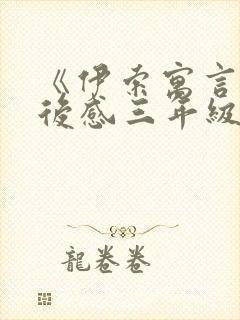 《伊索寓言
後感三年級
龍卷卷